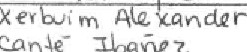 Xerbuim Alexander
Canté Ibañez